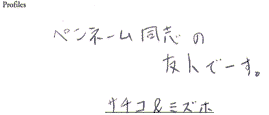 Profiles
ペンネーム同志の
友人でーす。
サチコ&ミズホ